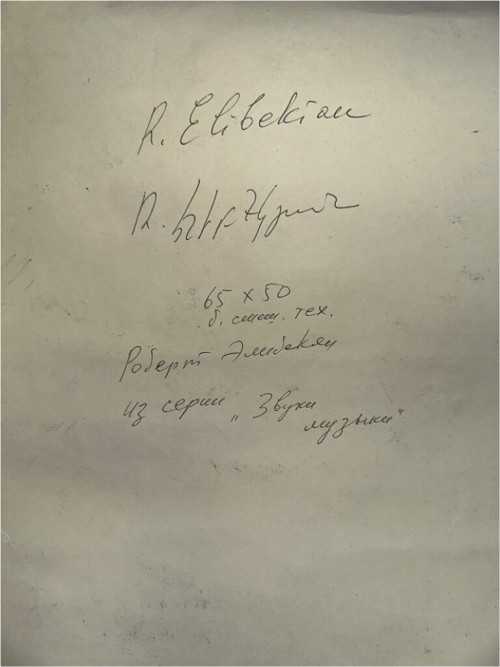 R. Elibekian
65 x 50
б. смеш. тех.
Роберт Элибекян
из серии „Звуки
музыки"